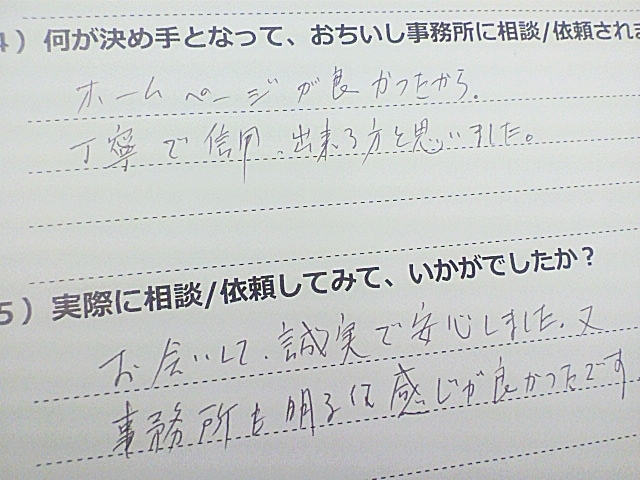 4）何が決め手となって、おちいし事務所に相談/依頼されま
ホームページが良かったから.
丁寧で信用.出来る方と思いました。
5）実際に相談/依頼してみて、いかがでしたか？
お会いして、誠実で安心しました.又
事務所も明るく感じが良かったです.